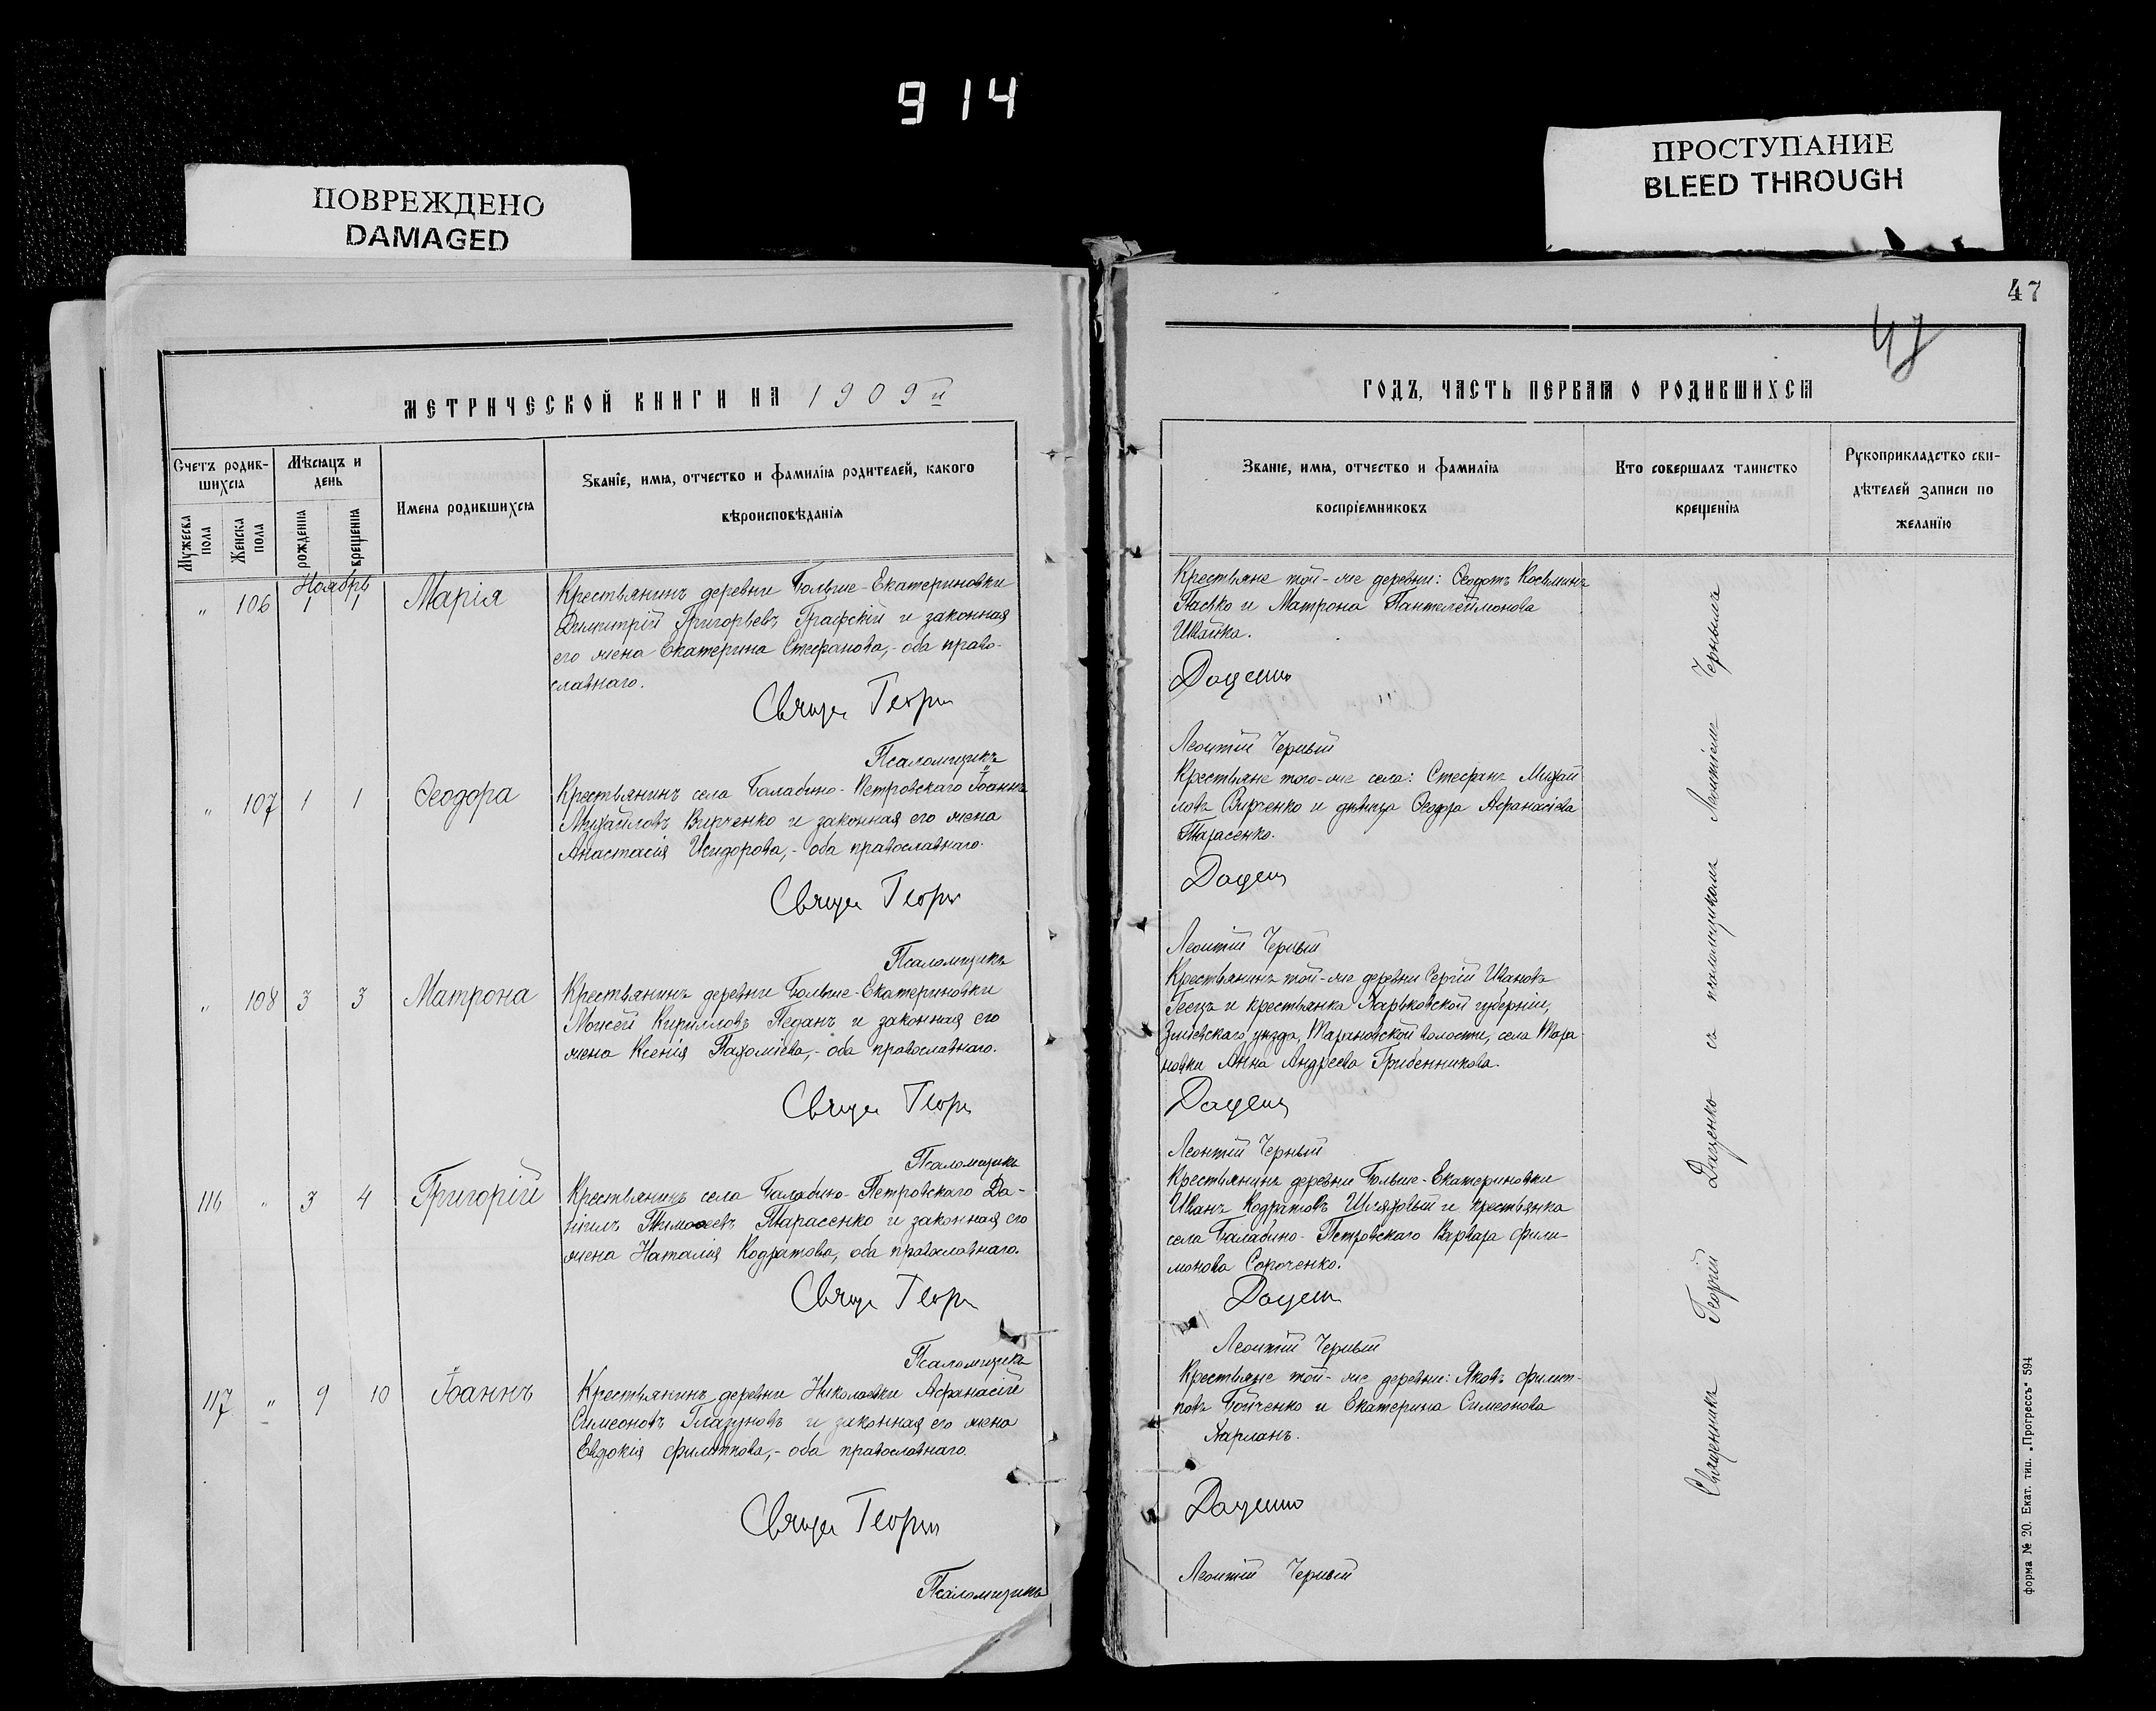 914
ПОВРЕЖДЕНО
DAMAGED
ПРОСТУПАНИЕ
BLEED THROUGH
МЕТРИЧЕСКОЙ КНИГИ НА 1909й
Счетъ родив-
шихся
Мѣсяцъ и
день
Имена родившихся
Званіе, имя, отчество и фамилія родителей, какого
вѣроисповѣданія
Мужеска
пола
Женска
пола
рожденія
крещенія
Ноябрь
" 106 1 1 Марія
Крестьянинъ деревни Больше-Екатериновки
Димитрій Григорьевъ Графскій и законная
его жена Екатерина Стефанова,- оба право-
славнаго.
Свяще Георги
Псаломщикъ
" 107 1 1 Ѳеодора
Крестьянинъ села Балабино-Петровскаго Іоаннъ
Михайловъ Вирченко и законная его жена
Анастасія Исидорова,- оба православнаго.
Свяще Георги
Псаломщикъ
" 108 3 3 Матрона
Крестьянинъ деревни Больше-Екатериновки
Моисей Кирилловъ Педанъ и законная его
жена Ксенія Пахоміева,- оба православнаго.
Свяще Георг
Псаломщикъ
116 " 3 4 Григорій
Крестьянинъ села Балабино-Петровскаго Да-
ніилъ Тимоѳеевъ Тарасенко и законная его
жена Наталія Кодратова, оба православнаго.
Свяще Георг
Псаломщикъ
117 " 9 10 Іоаннъ
Крестьянинъ деревни Николаевки Афанасій
Симеоновъ Глазуновъ и законная его жена
Евдокія Филиппова,- оба православнаго.
Свяще Георги
Псаломщикъ
47
47
ГОДЪ, ЧАСТЬ ПЕРВАЯ О РОДИВШИХСЯ
Званіе, имя, отчество и фамилія
воспріемниковъ
Кто совершалъ таинство
крещенія
Рукоприкладство сви-
дѣтелей записи по
желанію
Крестьяне той-же деревни: Ѳеодотъ Косьминъ
Пасько и Матрона Пантелеимонова
Швайка.
Даценко
Леонтій Черный
Крестьяне того-же села: Стефанъ Михай
ловъ Вирченко и дѣвица Ѳеодора Афанасіева
Тарасенко.
Дацен
Леонтій Черный
Крестьянинъ той-же деревни Сергій Ивановъ
Геецъ и крестьянка Харьковской губерніи,
Зміевскаго уѣзда, Тарановской волости, села Тара-
новки Анна Андреева Грибенникова.
Даценк
Леонтій Черный
Крестьянинъ деревни Больше-Екатериновки
Иванъ Кодратовъ Шляховый и крестьянка
села Балабино-Петровскаго Варвара Фили-
монова Сороченко.
Даценк
Леонтій Черный
Крестьяне той-же деревни: Яковъ Филип-
повъ Бойченко и Екатерина Симеонова
Харланъ.
Даценко
Леонтій Черный
Священникъ Георгій Даценко съ псаломщикомъ Леонтіемъ Чернымъ
форма № 20. Екат. тип. „Прогрессъ" 594